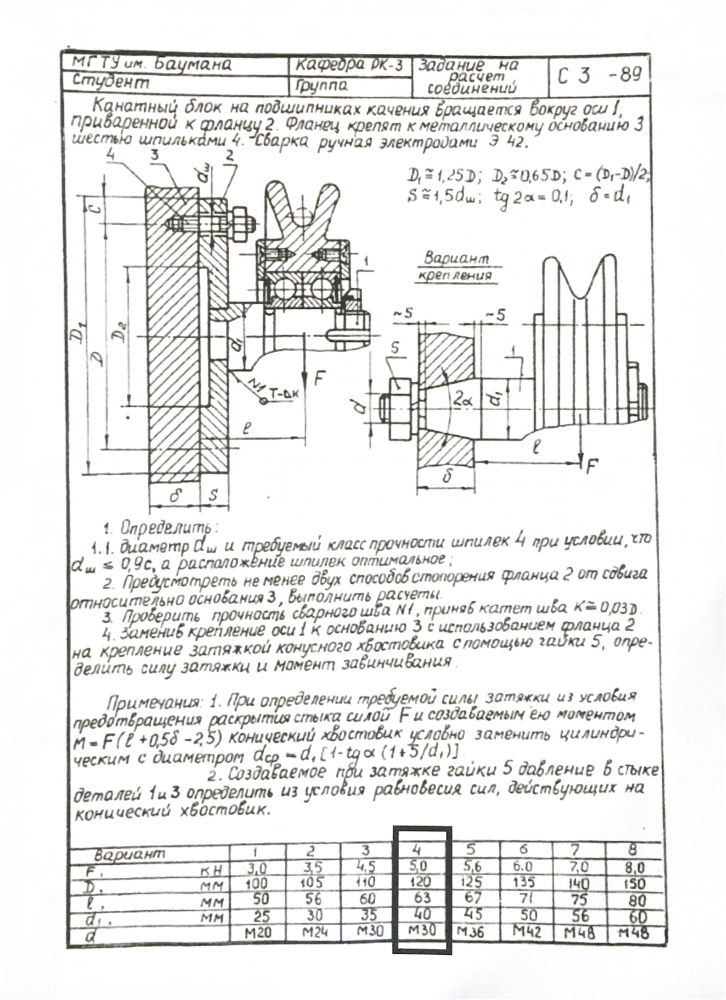 МГТУ им. Баумана
Студент
Кафедра РК-3
Группа
Задание на
расчет
соединений
С 3 -89
Канатный блок на подшипниках качения вращается вокруг оси 1,
приваренной к фланцу 2. Фланец крепят к металлическому основанию 3
шестью шпильками 4. Сварка ручная электродами Э 42.
D₁≅1,25D; D₂≅0,65D; c=(D₁-D)/2;
S≅1,5dш; tg2α=0,1; δ=d₁
4 3 dш 2
C
1
D₁
D
D₂
d₁
F
N1 Т-∆к
ℓ
δ
S
Вариант
крепления
~5
~5
5
1
d
2α
d₁
ℓ
F
δ
1. Определить:
1.1. диаметр dш и требуемый класс прочности шпилек 4 при условии, что
dш ≤ 0,9c, а расположение шпилек оптимальное;
2. Предусмотреть не менее двух способов стопорения фланца 2 от сдвига
относительно основания 3, выполнить расчеты.
3. Проверить прочность сварного шва N1, приняв катет шва K≅0,03D.
4. Заменив крепление оси 1 к основанию 3 с использованием фланца 2
на крепление затяжкой конусного хвостовика с помощью гайки 5, опре-
делить силу затяжки и момент завинчивания.
Примечания: 1. При определении требуемой силы затяжки из условия
предотвращения раскрытия стыка силой F и создаваемым ею моментом
M=F(ℓ+0,5δ-2,5) конический хвостовик условно заменить цилиндри-
ческим с диаметром dср=d₁[1-tgα(1+5/d₁)]
2. Создаваемое при затяжке гайки 5 давление в стыке
деталей 1 и 3 определить из условия равновесия сил, действующих на
конический хвостовик.
Вариант 1 2 3 4 5 6 7 8
F, кН 3,0 3,5 4,5 5,0 5,6 6.0 7,0 8,0
D, мм 100 105 110 120 125 135 140 150
ℓ, мм 50 56 60 63 67 71 75 80
d₁, мм 25 30 35 40 45 50 56 60
d М20 М24 М30 М30 М36 М42 М48 М48